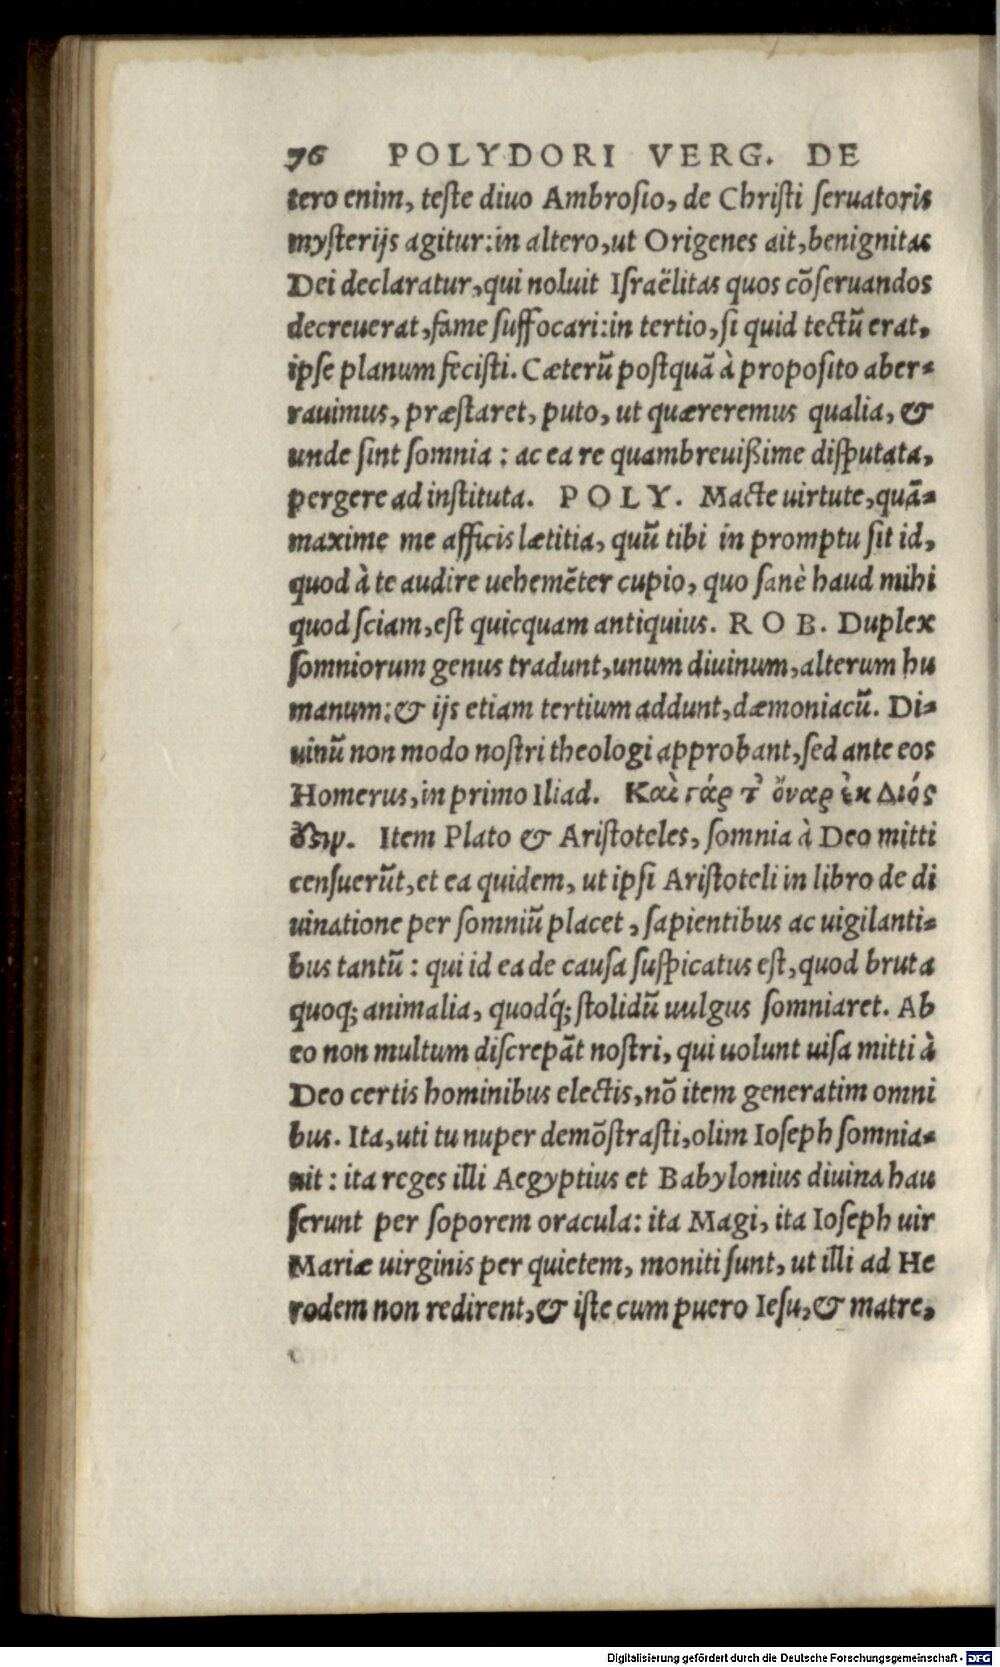 76 POLYDORI VERG. DE
tero enim, teſte diuo Ambroſio, de Chriſti ſeruatoris
myſterijs agitur: in altero, ut Origenes ait, benignitas
Dei declaratur, qui noluit Iſraëlitas quos cõſeruandos
decreuerat, fame ſuffocari: in tertio, ſi quid tectũ erat,
ipſe planum feciſti. Cæterũ poſtquã à propoſito aber-
rauimus, præſtaret, puto, ut quæreremus qualia, &
unde ſint ſomnia: ac ea re quambreuißime diſputata,
pergere ad inſtituta. POLY. Macte uirtute, quã-
maxime me afficis lætitia, quũ tibi in promptu ſit id,
quod à te audire uehemẽter cupio, quo ſanè haud mihi
quod ſciam, eſt quicquam antiquius. ROB. Duplex
ſomniorum genus tradunt, unum diuinum, alterum hu
manum: & ijs etiam tertium addunt, dæmoniacũ. Di-
uinũ non modo noſtri theologi approbant, ſed ante eos
Homerus, in primo Iliad. Καὶ γάρ τ' ὄναρ ἐκ Διός
ἐστιν. Item Plato & Ariſtoteles, ſomnia à Deo mitti
cenſuerũt, et ea quidem, ut ipſi Ariſtoteli in libro de di
uinatione per ſomniũ placet, ſapientibus ac uigilanti-
bus tantũ: qui id ea de cauſa ſuſpicatus eſt, quod bruta
quoq; animalia, quodq́; ſtolidũ uulgus ſomniaret. Ab
eo non multum diſcrepãt noſtri, qui uolunt uiſa mitti à
Deo certis hominibus electis, nõ item generatim omni
bus. Ita, uti tu nuper demõſtraſti, olim Ioſeph ſomnia-
uit: ita reges illi Aegyptius et Babylonius diuina hau
ſerunt per ſoporem oracula: ita Magi, ita Ioſeph uir
Mariæ uirginis per quietem, moniti ſunt, ut illi ad He
rodem non redirent, & iſte cum puero Ieſu, & matre,
Digitalisierung gefördert durch die Deutsche Forschungsgemeinschaft - DFG